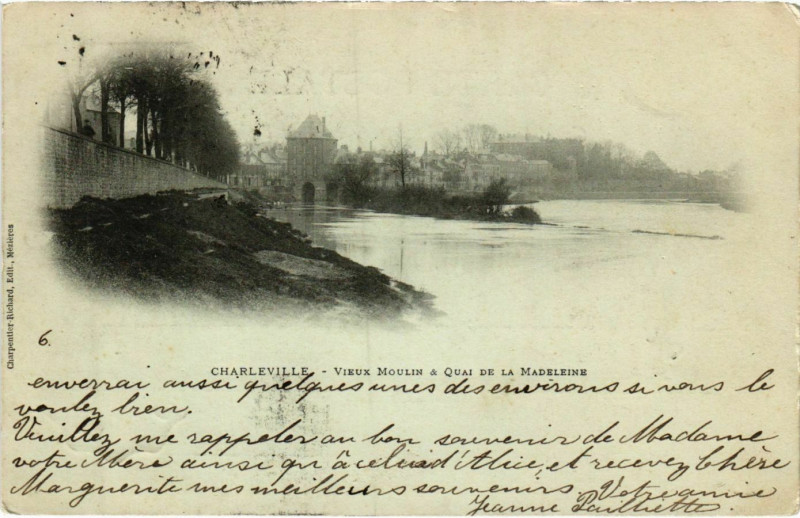 Charpentier-Richard, Edit., Mézières
6.
CHARLEVILLE. - VIEUX MOULIN & QUAI DE LA MADELEINE
enverrai aussi quelques unes des environs si vous le
voulez bien.
Veuillez me rappeler au bon souvenir de Madame
votre Mère ainsi qu'à celui d'Alice, et recevez Chère
Marguerite mes meilleurs souvenirs. Votre amie
Jeanne